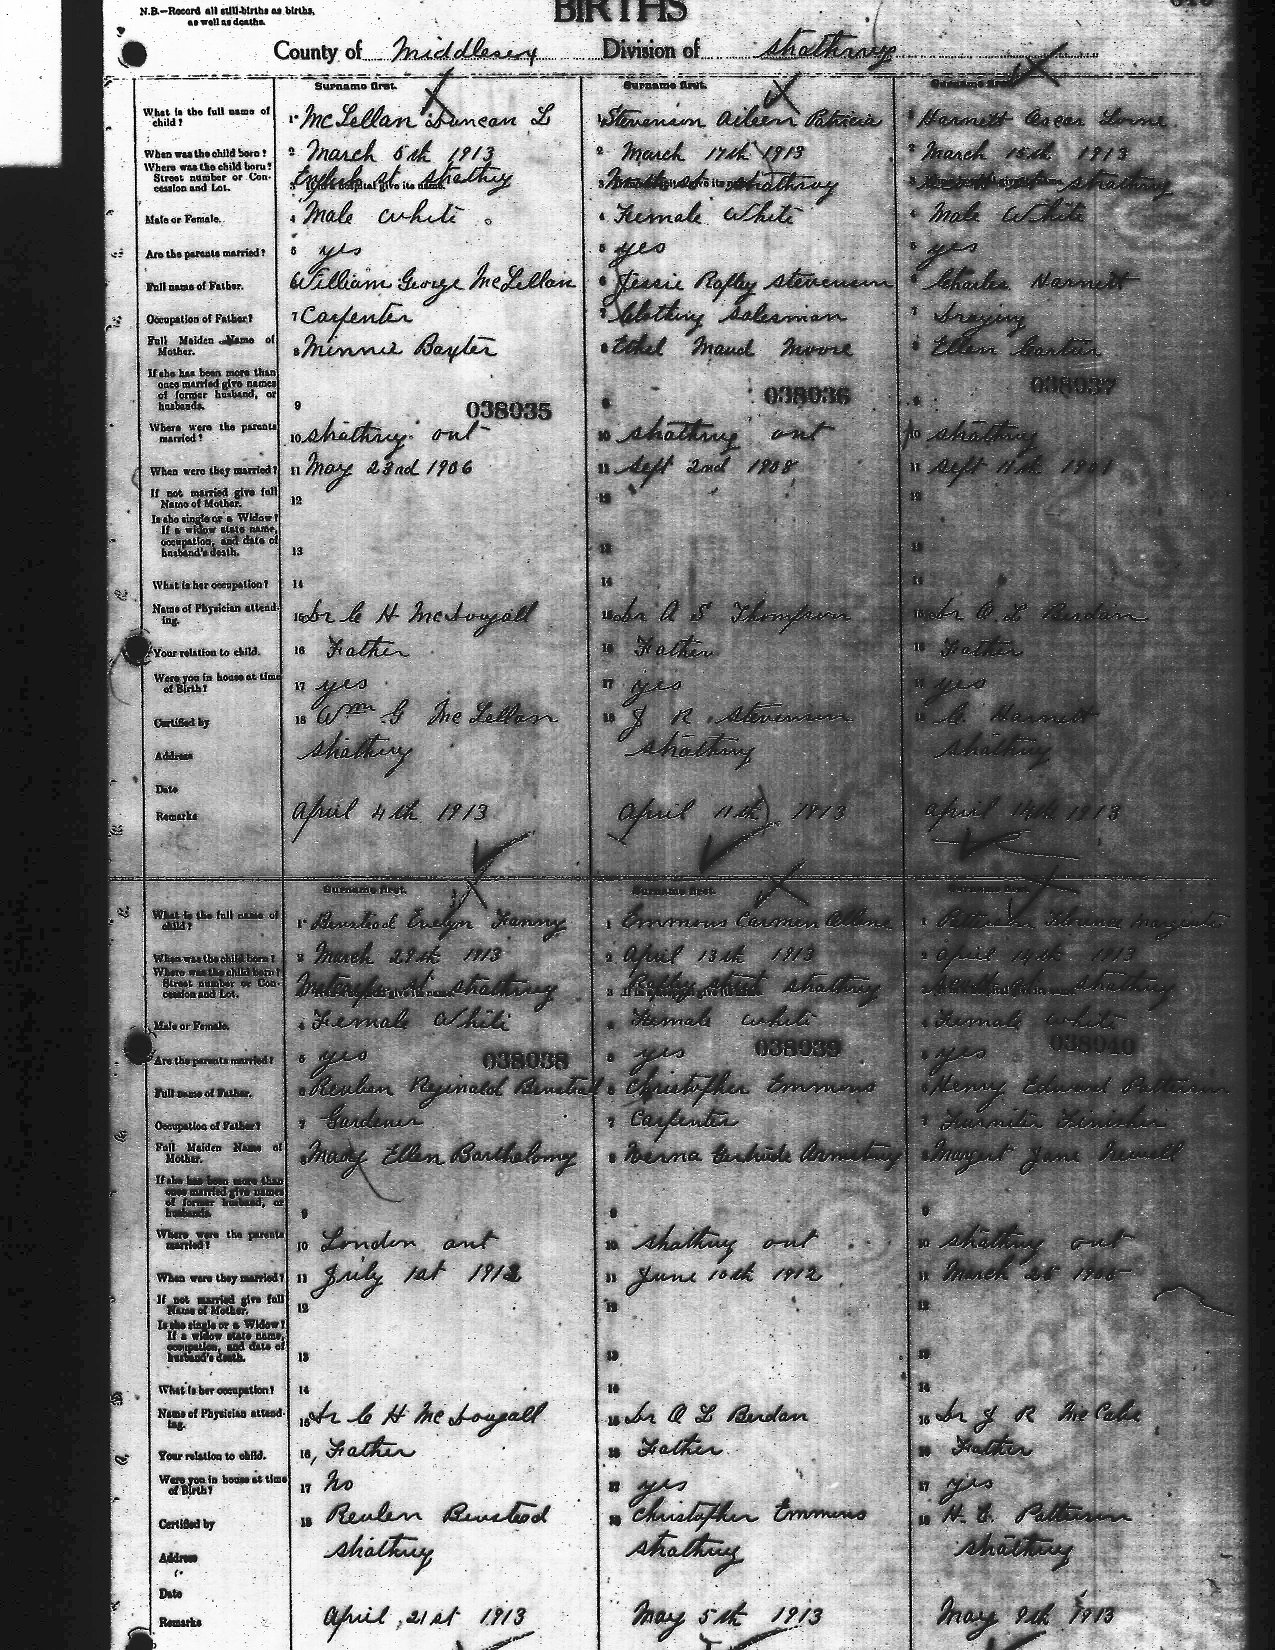 N.B.—Record all still-births as births,
as well as deaths.
BIRTHS
County of Middlesex Division of Strathroy
Surname first. Surname first. Surname first.
What is the full name of child? 1 McLellan Duncan L 1 Stevenson Aileen Patricia 1 Harnett Oscar Lorne
When was the child born? 2 March 5th 1913 2 March 17th 1913 2 March 15th 1913
Where was the child born? Street number or Concession and Lot. 3 English st Strathroy 3 st Strathroy 3 Strathroy
Male or Female. 4 Male White 4 Female White 4 Male White
Are the parents married? 5 yes 5 yes 5 yes
Full name of Father. 6 William George McLellan 6 Jessie Rapley Stevenson 6 Charles Harnett
Occupation of Father? 7 Carpenter 7 Clothing Salesman 7 Draying
Full Maiden Name of Mother. 8 Minnie Baxter 8 Ethel Maud Moore 8 Ellen
If she has been more than once married give names of former husband, or husbands. 9 038035 9 038036 9 038037
Where were the parents married? 10 Strathroy ont 10 Strathroy ont 10 Strathroy
When were they married? 11 May 23rd 1906 11 Sept 2nd 1908 11 Sept
If not married give full Name of Mother. 12 12 12
Is she single or a Widow? If a widow state name, occupation, and date of husband's death. 13 13 13
What is her occupation? 14 14 14
Name of Physician attending. 15 Dr C H McDougall 15 Dr A S Thompson 15 Dr O L Berdan
Your relation to child. 16 Father 16 Father 16 Father
Were you in house at time of Birth? 17 yes 17 yes 17 yes
Certified by 18 Wm G McLellan 18 J R Stevenson 18 C. Harnett
Address Strathroy Strathroy Strathroy
Date
Remarks April 4th 1913 April 11th 1913 April 14th 1913
Surname first. Surname first. Surname first.
What is the full name of child? 1 Binstead Evelyn Fanny 1 Emmons Carmen 1 Patterson Florence
When was the child born? 2 March 29th 1913 2 April 13th 1913 2 April 14th 1913
Where was the child born? Street number or Concession and Lot. 3 Metcalfe st Strathroy 3 street Strathroy 3 Strathroy
Male or Female. 4 Female White 4 Female white 4 Female white
Are the parents married? 5 yes 038038 5 yes 038039 5 yes 038040
Full name of Father. 6 Reuben Reginald Binstead 6 Christopher Emmons 6 Henry Edward Patterson
Occupation of Father? 7 Gardener 7 Carpenter 7 Furniter Finisher
Full Maiden Name of Mother. 8 Mary Ellen Bartholomy 8 Verna Gertrude Armstrong 8 Margret Jane Newell
If she has been more than once married give names of former husband, or husbands. 9 9 9
Where were the parents married? 10 London ont 10 Strathroy ont 10 Strathroy ont
When were they married? 11 July 1st 1912 11 June 10th 1912 11 March 25
If not married give full Name of Mother. 12 12 12
Is she single or a Widow? If a widow state name, occupation, and date of husband's death. 13 13 13
What is her occupation? 14 14 14
Name of Physician attending. 15 Dr C H McDougall 15 Dr O L Berdan 15 Dr J R McCabe
Your relation to child. 16 Father 16 Father 16 Father
Were you in house at time of Birth? 17 No 17 yes 17 yes
Certified by 18 Reuben Binstead 18 Christopher Emmons 18 H. E. Patterson
Address Strathroy Strathroy Strathroy
Date
Remarks April 21st 1913 May 5th 1913 May 9th 1913